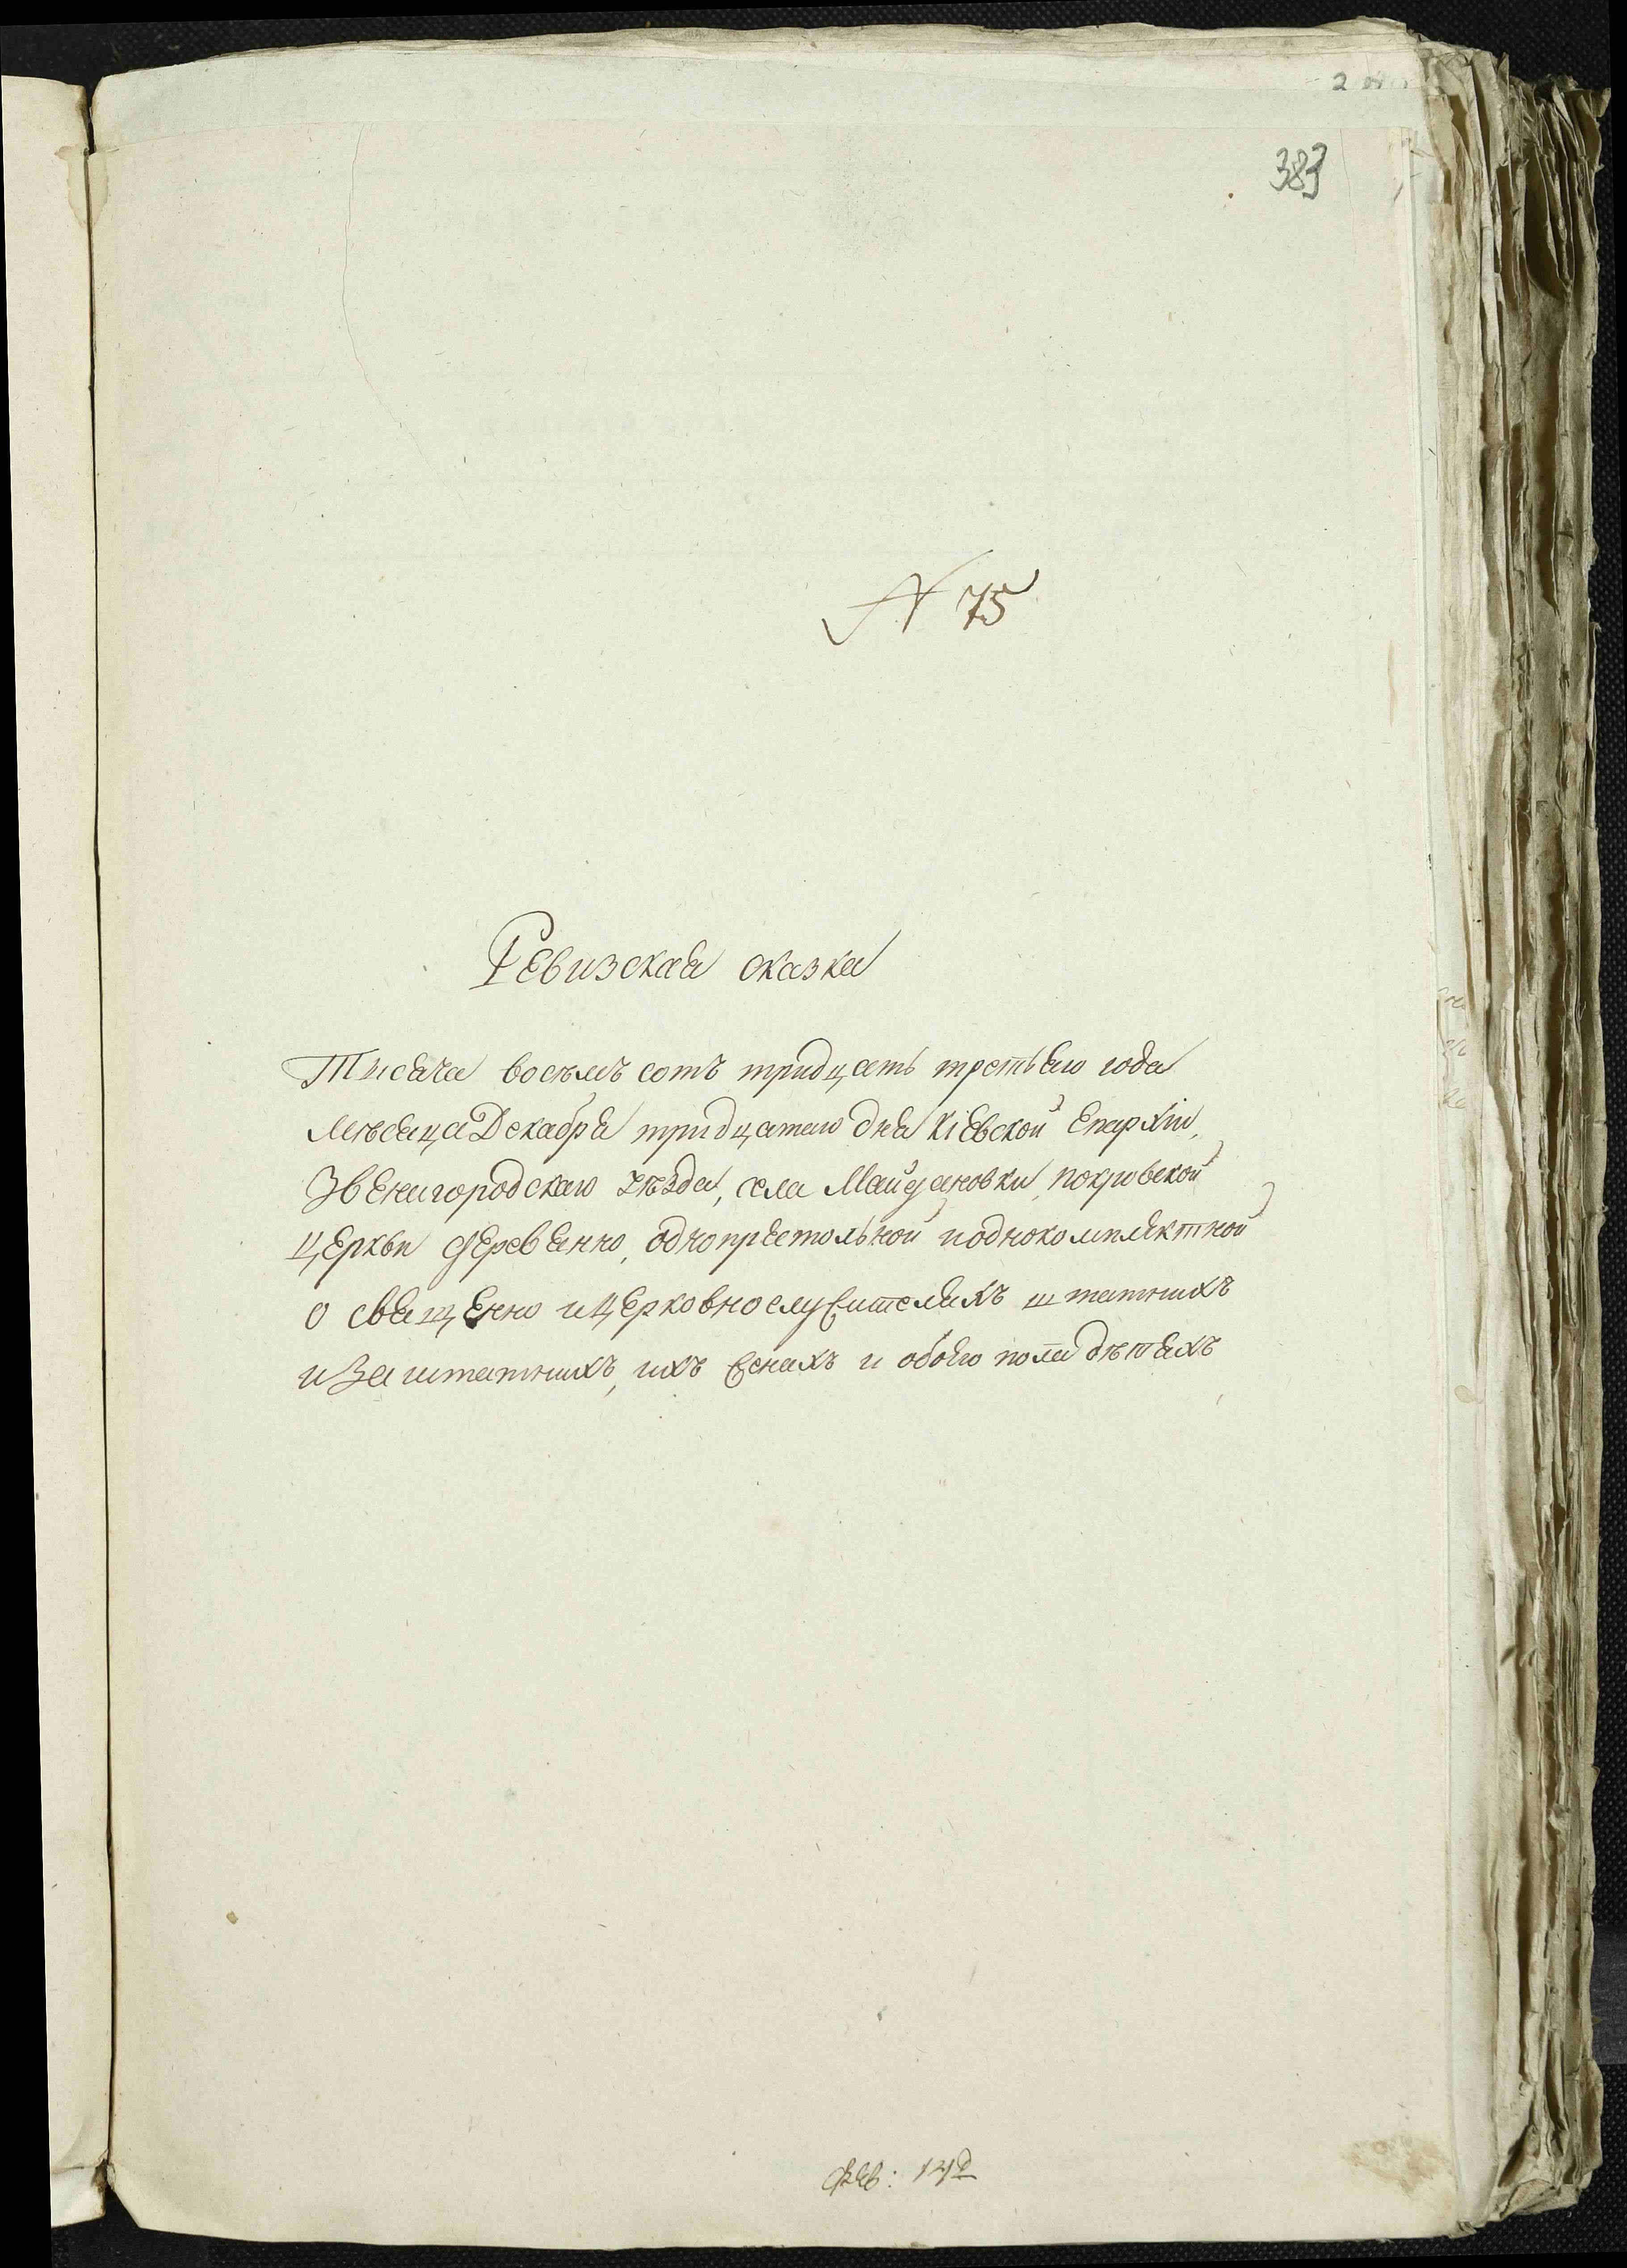 383
N 75
Ревизская сказка
Тисяча восемъ сотъ тридцать третьяго года
Мѣсяца Декабря тридцатаго дня Кіевской Епархіи,
Звенигородскаго уѣзда, села Майдановки, покровской
церкви деревянно, однопрестольной иоднокомплектной
о священно ицерковнослужителяхъ штатнихъ
иЗаштатнихъ, ихъ женахъ и обоего пола дѣтяхъ